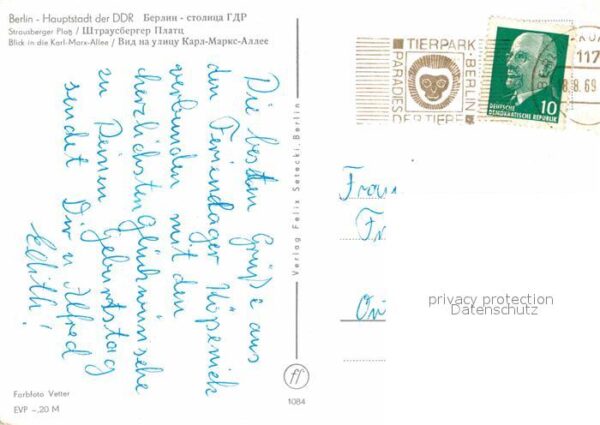 Berlin - Hauptstadt der DDR Берлин - столица ГДР
Strausberger Platz / Штраусбергер Платц
Blick in die Karl-Marx-Allee / Вид на улицу Карл-Маркс-Аллее
Die besten Grüße aus
dem Ferienlager Köpenick
verbunden mit den
herzlichsten Glückwünschen
zu Deinem Geburtstag
sendet Dir u. Alfred
Edith!
Farbfoto Vetter
EVP -,20 M
Verlag Felix Setecki, Berlin
ff
1084
TIERPARK · BERLIN
PARADIES
DER TIERE
117
8.69
DEUTSCHE
DEMOKRATISCHE REPUBLIK
10
Frau
Fr
privacy protection
Datenschutz